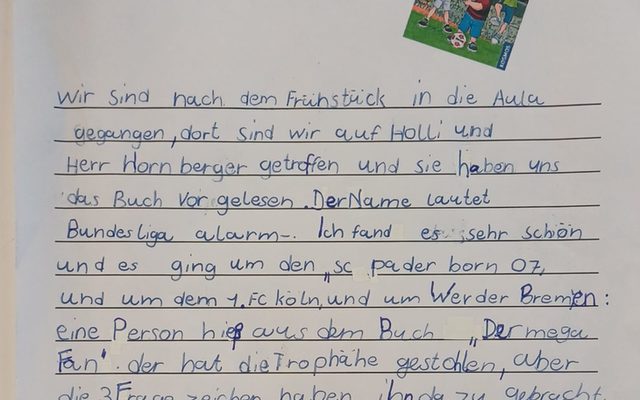 KOSMOS
Wir sind nach dem Frühstück in die Aula
gegangen, dort sind wir auf Holli und
Herr Hornberger getroffen und sie haben uns
das Buch vor gelesen. Der Name lautet
Bundesliga alarm-. Ich fand es sehr schön
und es ging um den „sc pader born 07,
und um dem 1. FC köln, und um Werder Bremen:
eine Person hieß aus dem Buch „Der mega
Fan". der hat die Trophähe gestohlen, aber
die 3 Frage zeichen haben ihn da zu gebracht,